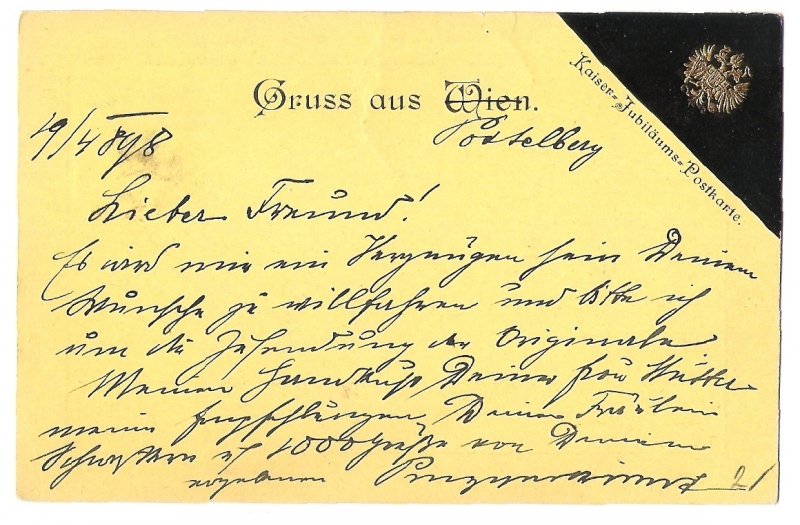 Gruss aus Wien.
Kaiser=Jubiläums=Postkarte.
19/4 898
Postelberg
Lieber Freund!
Es wird mir ein Vergnügen sein Deinem
Wunsche zu willfahren und bitte ich
um die Zusendung der Originale
Meinen Handkuß Deiner Frau Mutter
meine Empfehlungen Deinen Fräulein
Schwestern u 1000 Grüße von Deinem
ergebenen
21